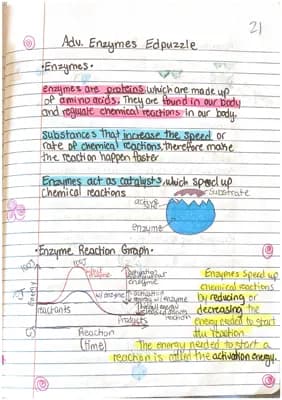 21
Adv. Enzymes Edpuzzle
• Enzymes •
enzymes are proteins, which are made up
of amino acids. They are found in our body
and regulate chemical reactions in our body.
Substances that increase the speed or
rate of chemical reactions, therefore make
the reaction happen faster
Enzymes act as catalysts, which speed up
chemical reactions
substrate
active
site
enzyme
• Enzyme Reaction Graph •
Energy
enzyme
w/ enzyme
reactants
products
Reaction
(time)
Enzymes speed up
chemical reactions
by reducing or
decreasing the
energy needed to start
the reaction
The energy needed to start
a reaction is called the activation energy.